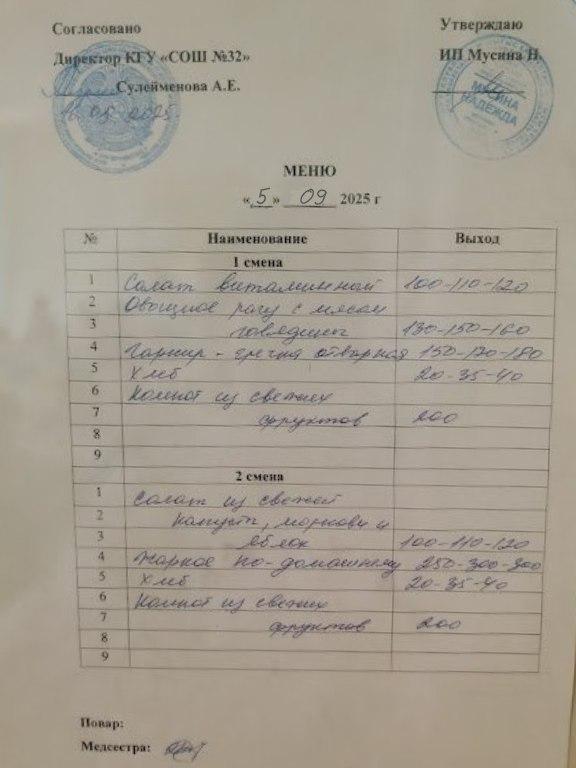 Согласовано
Утверждаю
Директор КГУ «СОШ №32»
ИП Мусина Н.
Сулейменова А.Е.
05 2025
МУСИНА
НАДЕЖДА
МЕНЮ
«5» 09 2025 г
№ Наименование Выход
1 смена
1 Салат витаминный 100-110-120
2 Овощное рагу с мясом
3 говядины 130-150-160
4 Гарнир - гречка отварная 150-170-180
5 Хлеб 20-35-40
6 Компот из свежих
7 фруктов 200
8
9
2 смена
1 Салат из свежей
2 капусты, моркови и
3 яблок 100-110-120
4 Жаркое по-домашнему 250-300-300
5 Хлеб 20-35-40
6 Компот из свежих
7 фруктов 200
8
9
Повар:
Медсестра: